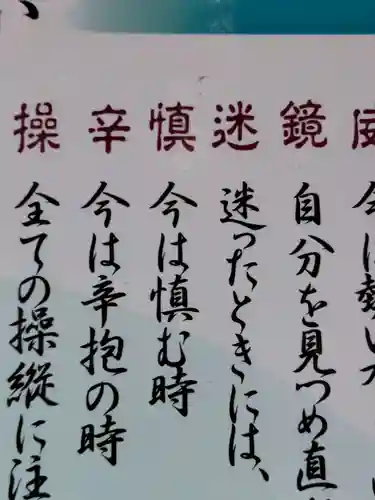 鏡
自分を見つめ直
迷
迷ったときには、
慎
今は慎む時
辛
今は辛抱の時
操
全ての操縦に注